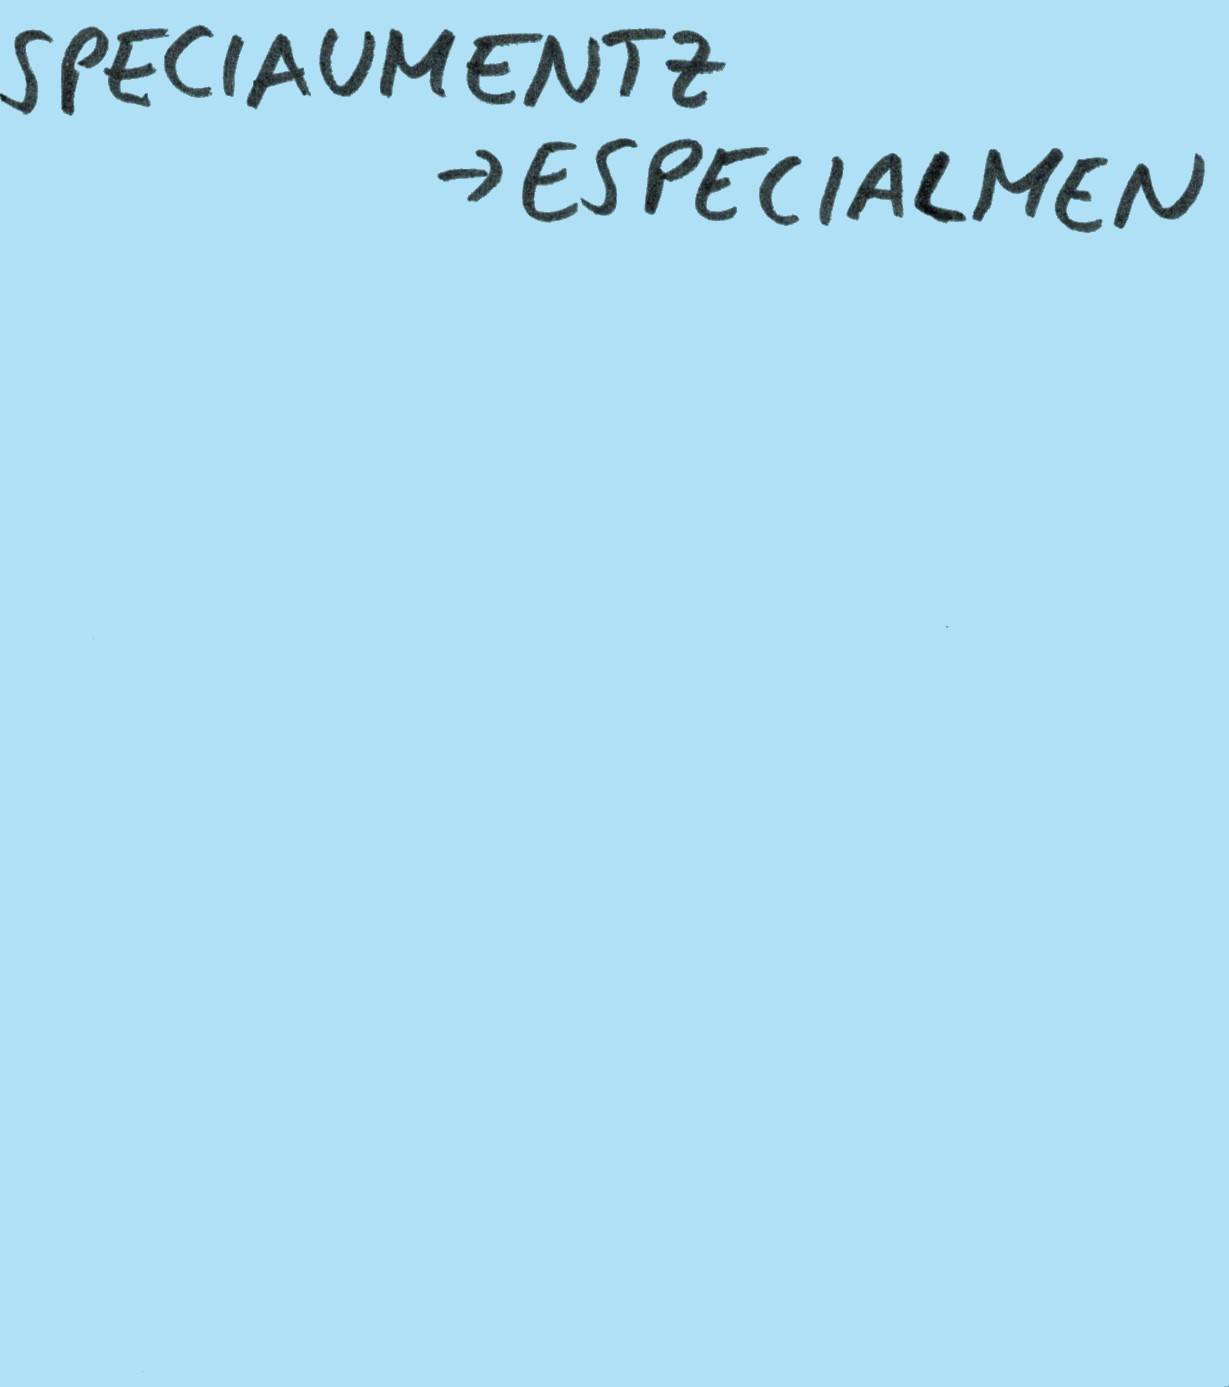 SPECIAUMENTZ
→ESPECIALMEN